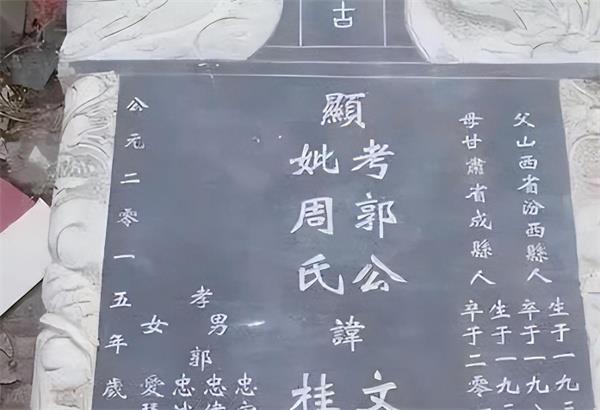 古
父山西省汾西縣人
生于一九
卒于一九
母甘肅省成縣人
生于一九
卒于二零
顯
考郭公諱文
妣周氏桂
孝男郭
忠
忠
忠
女愛
公元二零一五年歲